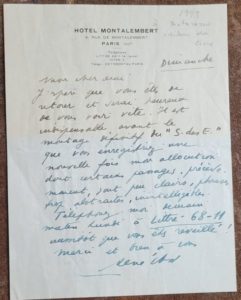 HOTEL MONTALEMBERT
3, RUE DE MONTALEMBERT
PARIS
Dimanche
Mon cher ami
J'espère que vous êtes de
retour et serai heureux
de vous voir vite. Il est
indispensable avant le
montage définitif du "S. des E."
que vous enregistriez une
nouvelle fois mon allocution
dont certains passages,
sont peu clairs, phrases
trop abstraites, inintelligibles.
Téléphonez moi demain
matin lundi à Littré 68-11
aussitôt que vous êtes réveillé!
Merci et bien à vous